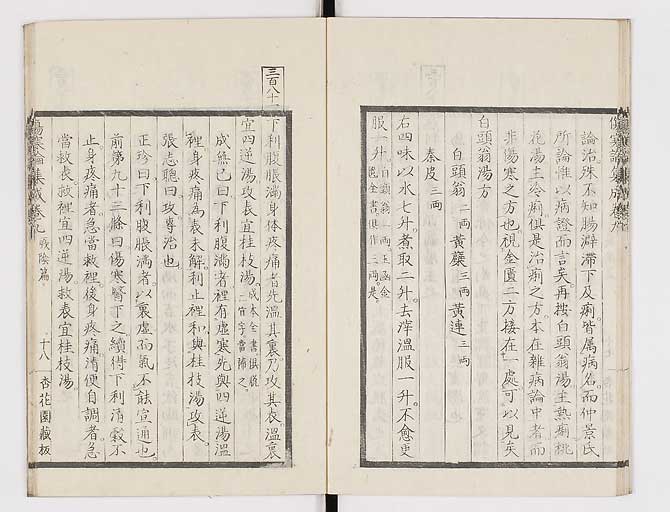 論治殊不知腸澼滯下及痢皆属病名而仲景氏
所論惟以病證而言矣再按白頭翁湯主熱痢桃
花湯主冷痢俱是治痢之方本在雜病論中者而
非傷寒之方也視金匱二方接在一處可以見矣
白頭翁湯方
白頭翁二両黄蘗三両黄連三両
秦皮三両
右四味以水七升煮取二升去滓温服一升不愈更
服一升白頭翁二両玉函金匱全書俱作三両是
三百八十一
下利腹脹満身体疼痛者先温其裏乃攻其表温裏
宜四逆湯攻表宜桂枝湯成本全書俱脱二宜字當補之
成無已曰下利腹満者裡有虚寒先與四逆湯温
裡身疼痛為表未解利止裡和與桂枝湯攻表
張志聰曰攻專治也
正珍曰下利腹脹満者以裏虚而氣不能宣通也
前第九十三條曰傷寒醫下之續得下利清穀不
止身疼痛者急當救裡後身疼痛清便自調者急
當救表救裡宜四逆湯救表宜桂枝湯
傷寒論集成卷九 厥陰篇 十八 杏花園藏板